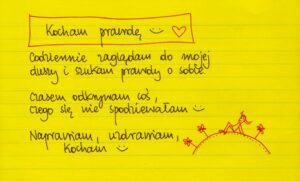 Kocham prawdę
Codziennie zaglądam do mojej
duszy i szukam prawdy o sobie
Czasem odkrywam coś,
czego się nie spodziewałam
Naprawiam, uzdrawiam,
kocham